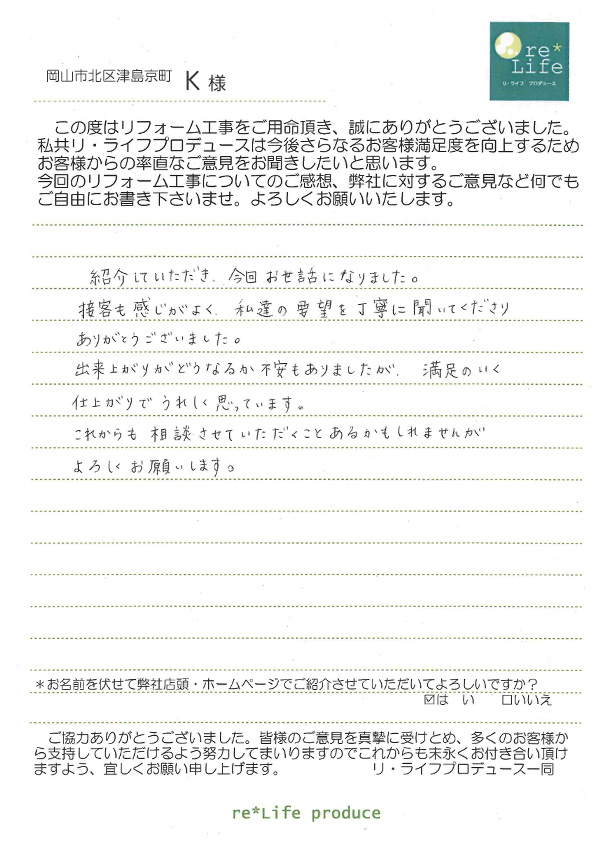 re*
Life
リ・ライフ プロデュース
岡山市北区津島京町 K 様
この度はリフォーム工事をご用命頂き、誠にありがとうございました。
私共リ・ライフプロデュースは今後さらなるお客様満足度を向上するため
お客様からの率直なご意見をお聞きしたいと思います。
今回のリフォーム工事についてのご感想、弊社に対するご意見など何でも
ご自由にお書き下さいませ。よろしくお願いいたします。
紹介していただき、今回お世話になりました。
接客も感じがよく、私達の要望を丁寧に聞いてくださり
ありがとうございました。
出来上がりがどうなるか不安もありましたが、満足のいく
仕上がりでうれしく思っています。
これからも相談させていただくことあるかもしれませんが
よろしくお願いします。
＊お名前を伏せて弊社店頭・ホームページでご紹介させていただいてよろしいですか？
☑は い ☐いいえ
ご協力ありがとうございました。皆様のご意見を真摯に受けとめ、多くのお客様か
ら支持していただけるよう努力してまいりますのでこれからも末永くお付き合い頂け
ますよう、宜しくお願い申し上げます。 リ・ライフプロデュース一同
re*Life produce